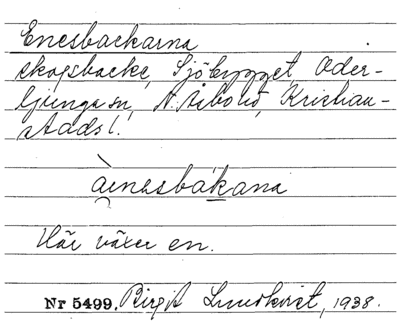 Enesbackarna
skogsbacke, Sjöbygget, Oder-
ljunga sn, N. Åsbo hd, Kristian-
stads l.
ài̯nasbákana
Här växer en.
Nr 5499. Birgit Lundkvist, 1938.